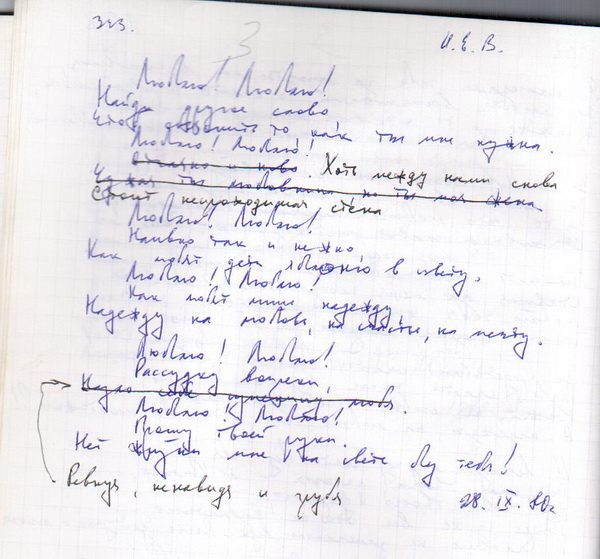 323.
3
И. Е. В.
Люблю! Люблю!
Найди другое слово
Чтоб дополнить то как ты мне нужна.
Люблю! Люблю!
и ново. Хоть между нами снова
ты любовница но ты моя жена
Стоит непроходимая стена
Люблю! Люблю!
Наивно так и нежно
Как любят дети яблоню в цвету.
Люблю! Люблю!
Как любят лишь надежду
Надежду на любовь, на счастье, на мечту.
Люблю! Люблю!
Рассудку вопреки,
любя.
Люблю! Люблю!
Прошу твоей руки.
Нет жизни мне на свете без тебя!
Ревнуя, ненавидя и грубя
28. IX. 80г.